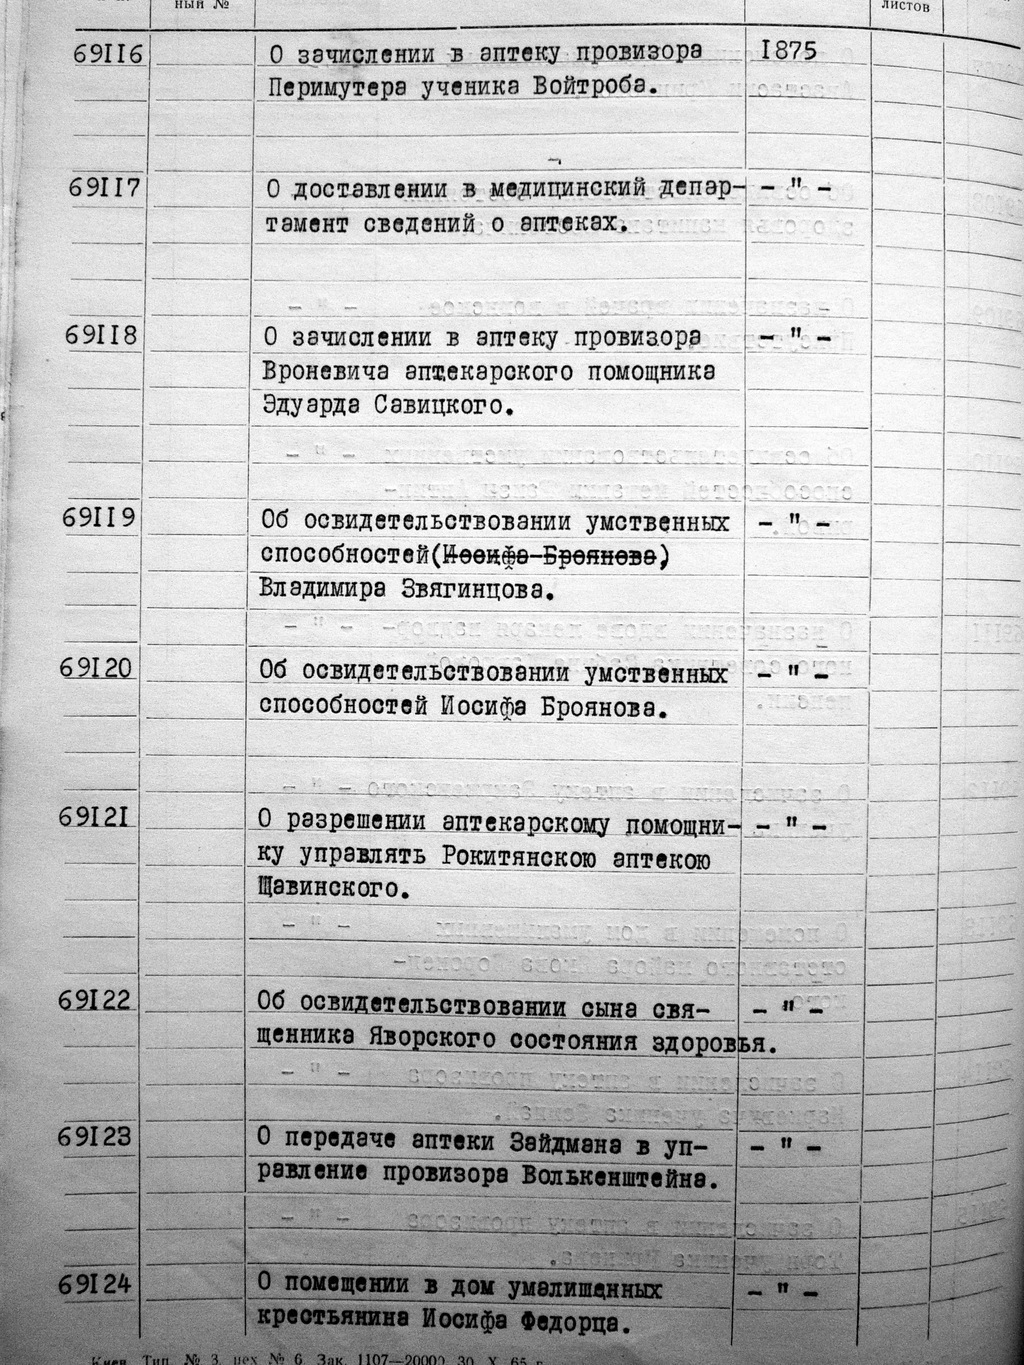 ный №
листов
69II6 О зачислении в аптеку провизора I875
Перимутера ученика Войтроба.
69II7 О доставлении в медицинский депар- - " -
тамент сведений о аптеках.
69II8 О зачислении в аптеку провизора - " -
Вроневича аптекарского помощника
Эдуарда Савицкого.
69II9 Об освидетельствовании умственных - " -
способностей(Иосифа Броянова)
Владимира Звягинцова.
69I20 Об освидетельствовании умственных - " -
способностей Иосифа Броянова.
69I2I О разрешении аптекарскому помощни- - " -
ку управлять Рокитянскою аптекою
Щавинского.
69I22 Об освидетельствовании сына свя- - " -
щенника Яворского состояния здоровья.
69I23 О передаче аптеки Зайдмана в уп- - " -
равление провизора Волькенштейна.
69I24 О помещении в дом умалишенных - " -
крестьянина Иосифа Федорца.
Киев. Тип. № 3, цех № 6. Зак. 1107—20000 30. X. 65 г.